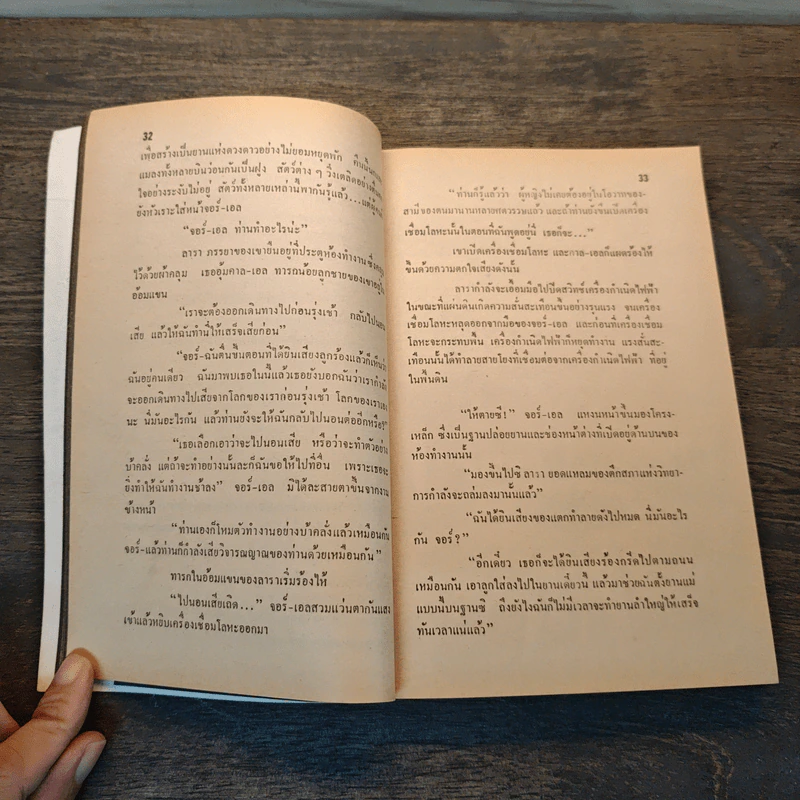 32
เพื่อสร้างเป็นยานแห่งดวงดาวอย่างไม่ยอมหยุดพัก คืนนั้น
แมลงทั้งหลายบินว่อนกันเป็นฝูง สัตว์ต่าง ๆ วิ่งเตลิดอย่าง
ใจอย่างระงับไม่อยู่ สัตว์ทั้งหลายเหล่านี้พากันรู้แล้ว...แต่
ยังหัวเราะใส่หน้าจอร์-เอล
“จอร์-เอล ท่านทำอะไรน่ะ”
ลารา ภรรยาของเขายืนอยู่ที่ประตูห้องทำงานซึ่ง
ไว้ด้วยผ้าคลุม เธออุ้มคาล-เอล ทารกน้อยลูกชายของเขาอยู่ใน
อ้อมแขน
“เราจะต้องออกเดินทางไปก่อนรุ่งเช้า กลับไปนอน
เสีย แล้วให้ฉันทำนี่ให้เสร็จเสียก่อน”
“จอร์-ฉันตื่นขึ้นตอนที่ได้ยินเสียงลูกร้องแล้วก็เห็นว่า
ฉันอยู่คนเดียว ฉันมาพบเธอในนี้แล้วเธอยังบอกฉันว่าเรากำลัง
จะออกเดินทางไปเสียจากโลกของเราก่อนรุ่งเช้า โลกของเราเอง
นะ นี่มันอะไรกัน แล้วท่านยังจะให้ฉันกลับไปนอนต่ออีกหรือ?”
“เธอเลือกเอาว่าจะไปนอนเสีย หรือว่าจะทำตัวอย่าง
บ้าคลั่ง แต่ถ้าจะทำอย่างนั้นละก็ฉันขอให้ไปที่อื่น เพราะเธอจะ
ยิ่งทำให้ฉันทำงานช้าลง” จอร์-เอล มิได้ละสายตาขึ้นจากงาน
ข้างหน้า
“ท่านเองก็โหมตัวทำงานอย่างบ้าคลั่งแล้วเหมือนกัน
จอร์-แล้วท่านก็กำลังเสียวิจารณญาณของท่านด้วยเหมือนกัน”
ทารกในอ้อมแขนของลาราเริ่มร้องไห้
“ไปนอนเสียเถิด...” จอร์-เอลสวมแว่นตากันแสง
เข้าแล้วหยิบเครื่องเชื่อมโลหะออกมา
33
“ท่านก็รู้แล้วว่า ผู้หญิงไม่เคยต้องอยู่ในโอวาทของ-
สามีของตนมานานหลายศตวรรษแล้ว และถ้าท่านยังขืนเปิดเครื่อง
เชื่อมโลหะนั้นในตอนที่ฉันพูดอยู่นี่ เธอก็จะ...”
เขาเปิดเครื่องเชื่อมโลหะ และคาล-เอลก็แผดร้องไห้
ขึ้นด้วยความตกใจเสียงดังนั้น
ลารากำลังจะเอื้อมมือไปปิดสวิทช์เครื่องกำเนิดไฟฟ้า
ในขณะที่แผ่นดินเกิดความสั่นสะเทือนขึ้นอย่างรุนแรง จนเครื่อง
เชื่อมโลหะหลุดออกจากมือของจอร์-เอล และก่อนที่เครื่องเชื่อม
โลหะจะกระทบพื้น เครื่องกำเนิดไฟฟ้าก็หยุดทำงาน แรงสั่นสะ-
เทือนนั้นได้ทำลายสายโยงที่เชื่อมต่อจากเครื่องกำเนิดไฟฟ้า ที่อยู่
ในพื้นดิน
“ให้ตายซี!” จอร์-เอล แหงนหน้าขึ้นมองโครง-
เหล็ก ซึ่งเป็นฐานปล่อยยานและช่องหน้าต่างที่เปิดอยู่ด้านบนของ
ห้องทำงานนั้น
“มองขึ้นไปซิ ลารา ยอดแหลมของตึกสภาแห่งวิทยา-
การกำลังจะถล่มลงมานั้นแล้ว”
“ฉันได้ยินเสียงของแตกทำลายดังไปหมด นี่มันอะไร
กัน จอร์?”
“อีกเดี๋ยว เธอก็จะได้ยินเสียงร้องกรีดไปตามถนน
เหมือนกัน เอาลูกใส่ลงไปในยานเดี๋ยวนี้ แล้วมาช่วยฉันตั้งยานแม่
แบบนี้บนฐานซิ ถึงยังไงฉันก็ไม่มีเวลาจะทำยานลำใหญ่ให้เสร็จ
ทันเวลาแน่แล้ว”